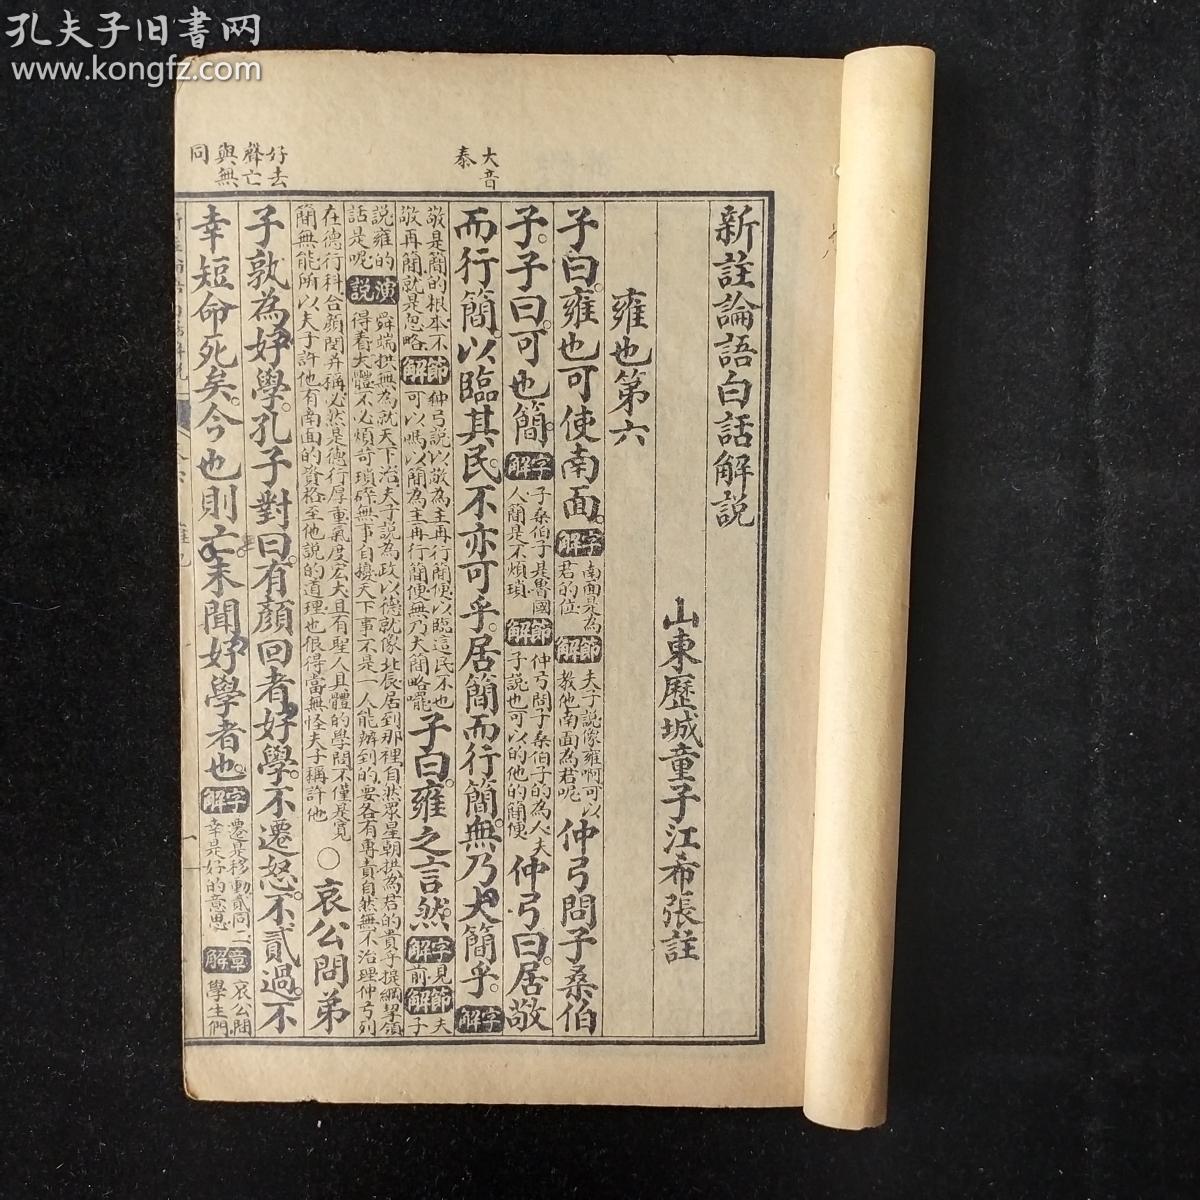 孔夫子旧书网
www.kongfz.com
大音
泰
好去
聲亡
與無
同
新註論語白話解説
山東歷城童子江希張註
雍也第六
子曰雍也可使南面。字解南面是為君的位節解夫子説像雍啊可以教他南面為君呢仲弓問子桑伯
子。子曰。可也簡。字解子桑伯子是魯國人簡是不煩瑣節解仲弓問子桑伯子的為人夫子説也可以的他的簡便仲弓曰。居敬
而行簡。以臨其民。不亦可乎。居簡而行簡。無乃大簡乎。字解
敬是簡的根本不敬再簡就是忽略節解仲弓説以敬為主再行簡便以臨這民不也可以嗎以簡為主再行簡便無乃大簡略嚁子曰。雍之言然。字解見前節解夫子
説雍的話是呢演説舜端拱無為就天下治夫子説為政以德就像北辰居到那裡自然眾星朝拱為君的貴乎提綱挈領得着大體不必煩苛瑣碎無事自擾天下事不是一人能辦到的要各有專責自然無不治理仲弓列
在德行科合顏閔并稱必然是德行厚重氣度宏大且有聖人具體的學問不僅是寬簡無能所以夫子許他有南面的資格至他説的道理也很得當無怪夫子稱許他〇哀公問弟
子孰為好學。孔子對曰。有顏回者好學。不遷怒。不貳過。不
幸短命死矣。今也則亡。未聞好學者也。字解遷是移動貳同二幸是好的意思章解哀公問學生們